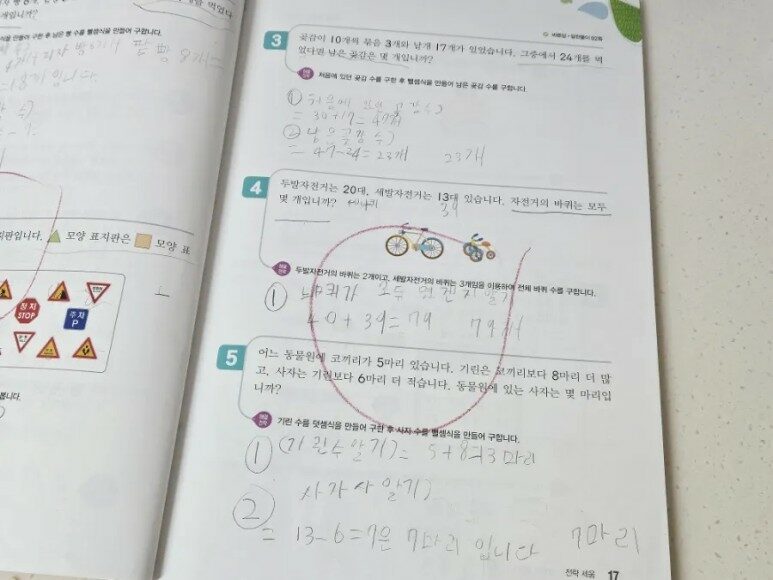 니까?
만들어 구한 후 남은 빵 수를 뺄셈식을 만들어 구합니다.
8개
입니다
지판입니다. 모양 표지판은 모양 표
정지
STOP
주차
P
봅니다.
3
곶감이 10개씩 묶음 3개와 낱개 17개가 있었습니다. 그중에서 24개를 먹
었다면 남은 곶감은 몇 개입니까?
처음에 있던 곶감 수를 구한 후 뺄셈식을 만들어 남은 곶감 수를 구합니다.
① 처음에 있던 곶감수)
= 30+17=47개
② 남은 곶감 수)
= 47-24=23개 23개
4
두발자전거는 20대, 세발자전거는 13대 있습니다. 자전거의 바퀴는 모두
몇 개입니까? 39
두발자전거의 바퀴는 2개이고, 세발자전거의 바퀴는 3개임을 이용하여 전체 바퀴 수를 구합니다.
① 바퀴가 모두 몇 개인지 알기
40+39=79 79개
5
어느 동물원에 코끼리가 5마리 있습니다. 기린은 코끼리보다 8마리 더 많
고, 사자는 기린보다 6마리 더 적습니다. 동물원에 있는 사자는 몇 마리입
니까?
기린 수를 덧셈식을 만들어 구한 후 사자 수를 뺄셈식을 만들어 구합니다.
① (기린수알기)= 5+8=13마리
②
= 13-6=7은 7마리 입니다 7마리
전략 세움 17